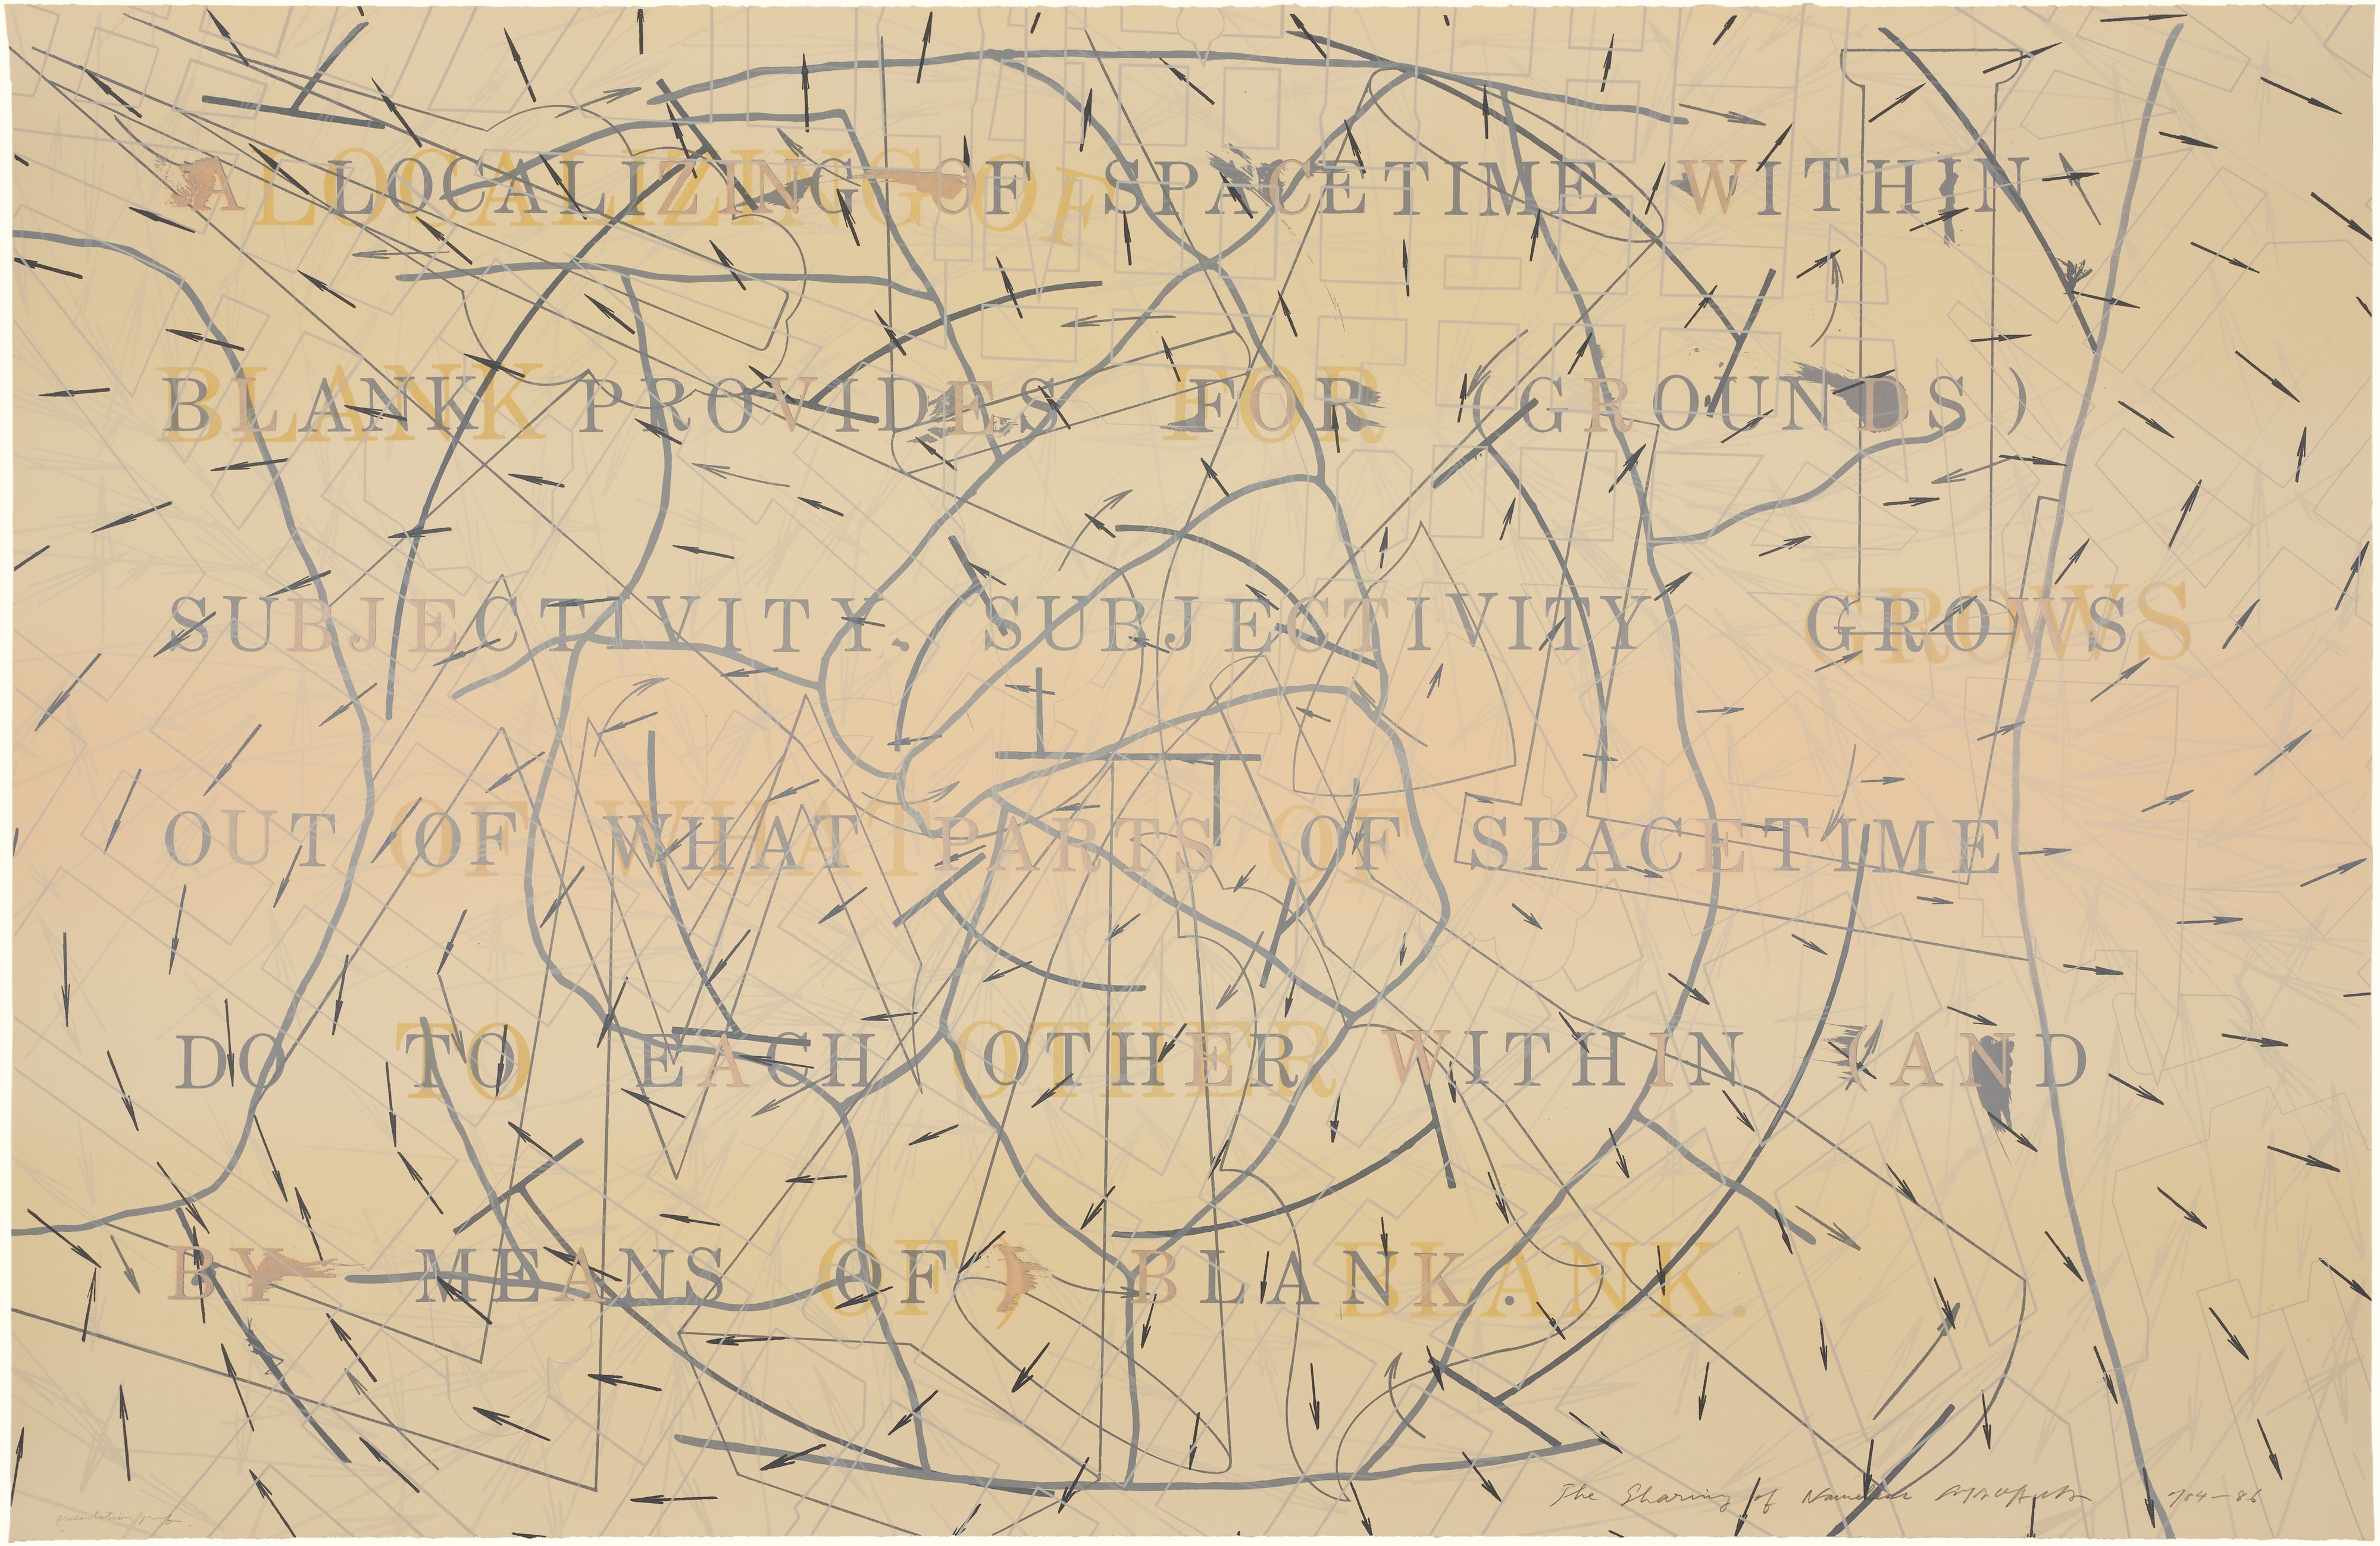 A LOCALIZING OF SPACETIME WITHIN
BLANK PROVIDES FOR (GROUNDS)
SUBJECTIVITY. SUBJECTIVITY GROWS
OUT OF WHAT PARTS OF SPACETIME
DO TO EACH OTHER WITHIN (AND
BY MEANS OF) BLANK.
presentation proof
The Sharing of Nameless '84-86